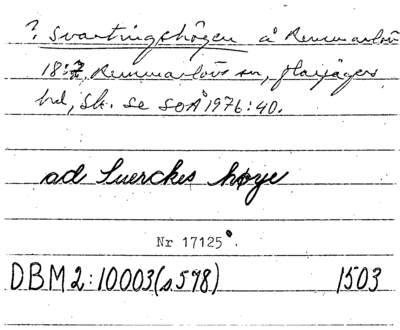 ? Svartingehögen å Remmarlöv
18:2, Remmarlövs sn, Harjagers
hd, Sk. Se SOÅ 1976:40.
ad Suerckes høye
Nr 17125.
DBM 2:10003(s.578) 1503